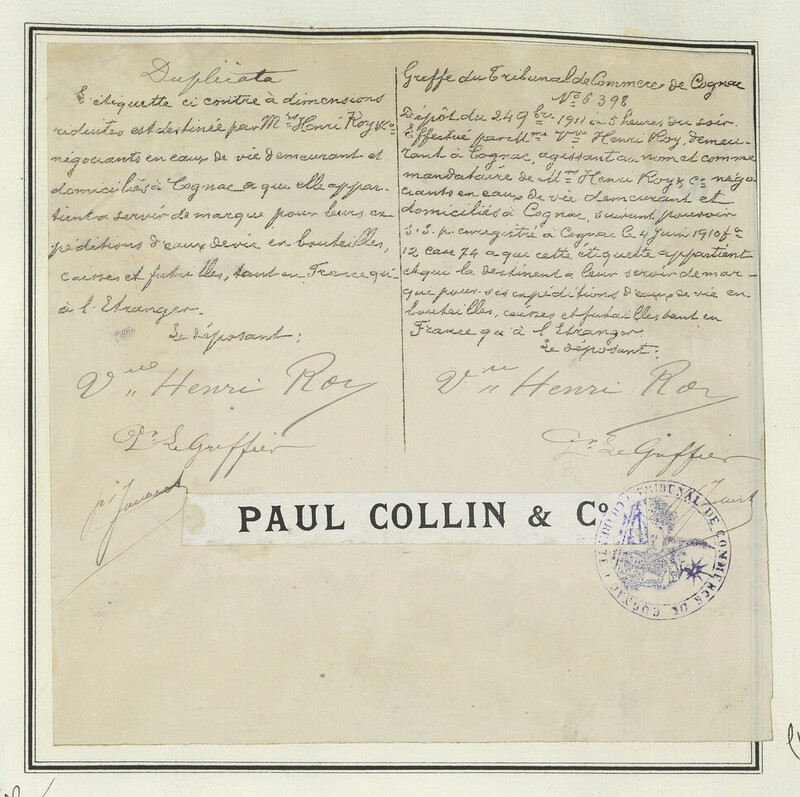 Duplicata
L'étiquette ci contre à dimensions
réduites est destinée par Mrs Henri Roy & Co
négociants en eaux de vie demeurant et
domiciliés à Cognac a que elle appar-
tient a servir de marque pour leurs ex-
péditions d'eaux de vie en bouteilles,
caisses et futailles, tant en France qu'
à l'Etranger.
Le déposant:
Vve Henri Roy
Pr Le Greffier
Greffe du Tribunal de Commerce de Cognac
No 6398
Dépôt du 24 9bre 1911 à 5 heures du soir.
Effectué par Mme Vve Henri Roy, demeu-
rant à Cognac, agissant au nom et comme
mandataire de Mrs Henri Roy & Co négo-
ciants en eaux de vie demeurant et
domiciliés à Cognac, suivant pouvoir
S.S.p. enregistré à Cognac le 4 Juin 1910 fo
12 case 74 a qui cette étiquette appartient
et qui la destinent a leur servir de mar-
que pour ses expéditions d'eaux de vie en
bouteilles, caisses et futailles tant en
France qu'à l'Etranger.
Le déposant:
Vve Henri Roy
Pr Le Greffier
PAUL COLLIN & Co
TRIBUNAL DE COMMERCE DE COGNAC